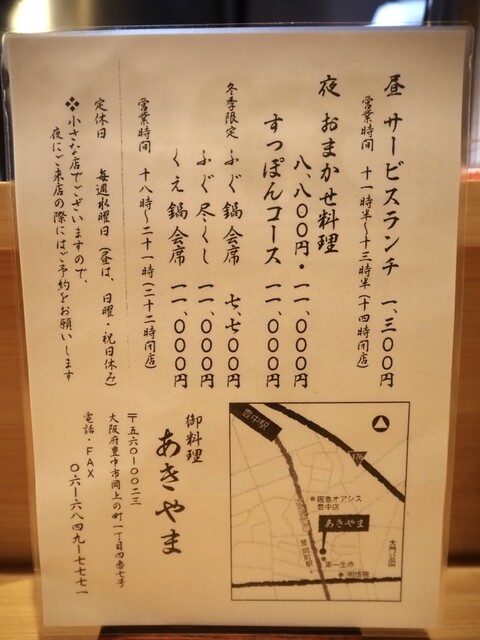 昼　サービスランチ　一、三〇〇円
営業時間　十一時半〜十三時半（十四時閉店）
夜　おまかせ料理
八、八〇〇円・一一、〇〇〇円
すっぽんコース　一一、〇〇〇円
冬季限定　ふぐ鍋会席　七、七〇〇円
ふぐ尽くし　一一、〇〇〇円
くえ鍋会席　一一、〇〇〇円
営業時間　十八時〜二十一時（二十二時閉店）
定休日　毎週水曜日（昼は、日曜・祝日休み）
❖小さな店でございますので、
夜にご来店の際にはご予約をお願いします
御料理
あきやま
〒五六〇-〇〇二三
大阪府豊中市岡上の町一丁目四番七号
電話・FAX
〇六-六八四九-七七七一
豊中駅
176
阪急オアシス
豊中店
あきやま
第一生命